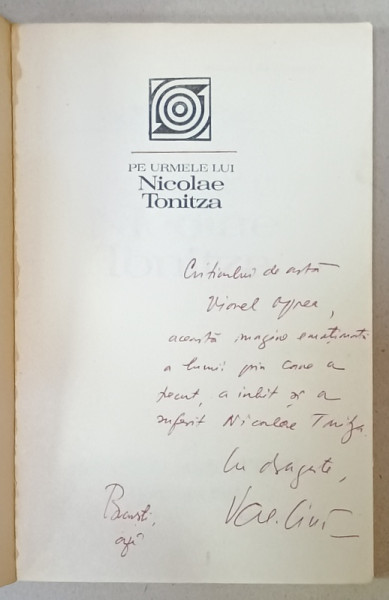 PE URMELE LUI
Nicolae
Tonitza
Criticului de artă
Viorel Oprea,
această imagine emoționată
a lumii prin care a
trecut, a iubit și a
suferit Nicolae Tonitza.
Cu dragoste,
Bucști,